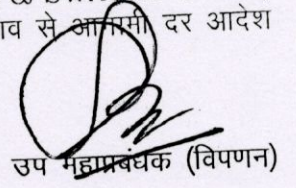 व से आगामी दर आदेश
उप महाप्रबंधक (विपणन)